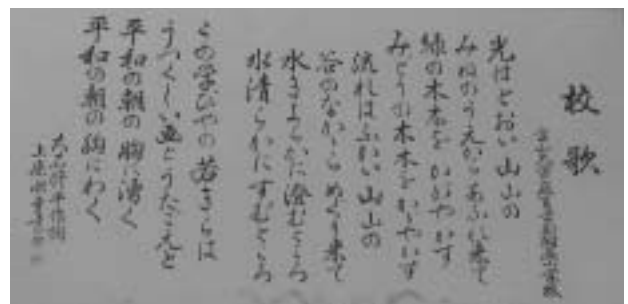 校歌
光はとおい山山の
みねのうえからあふれ来て
緑の木木をかがやかす
みどりの木木をかがやかす
流れはふかい山山の
谷のなかからめぐり来て
水きよらかに澄むところ
水清らかにすむところ
この学びやの若きらは
うつくしい血とうたごえと
平和の朝の胸に湧く
平和の朝の胸にわく